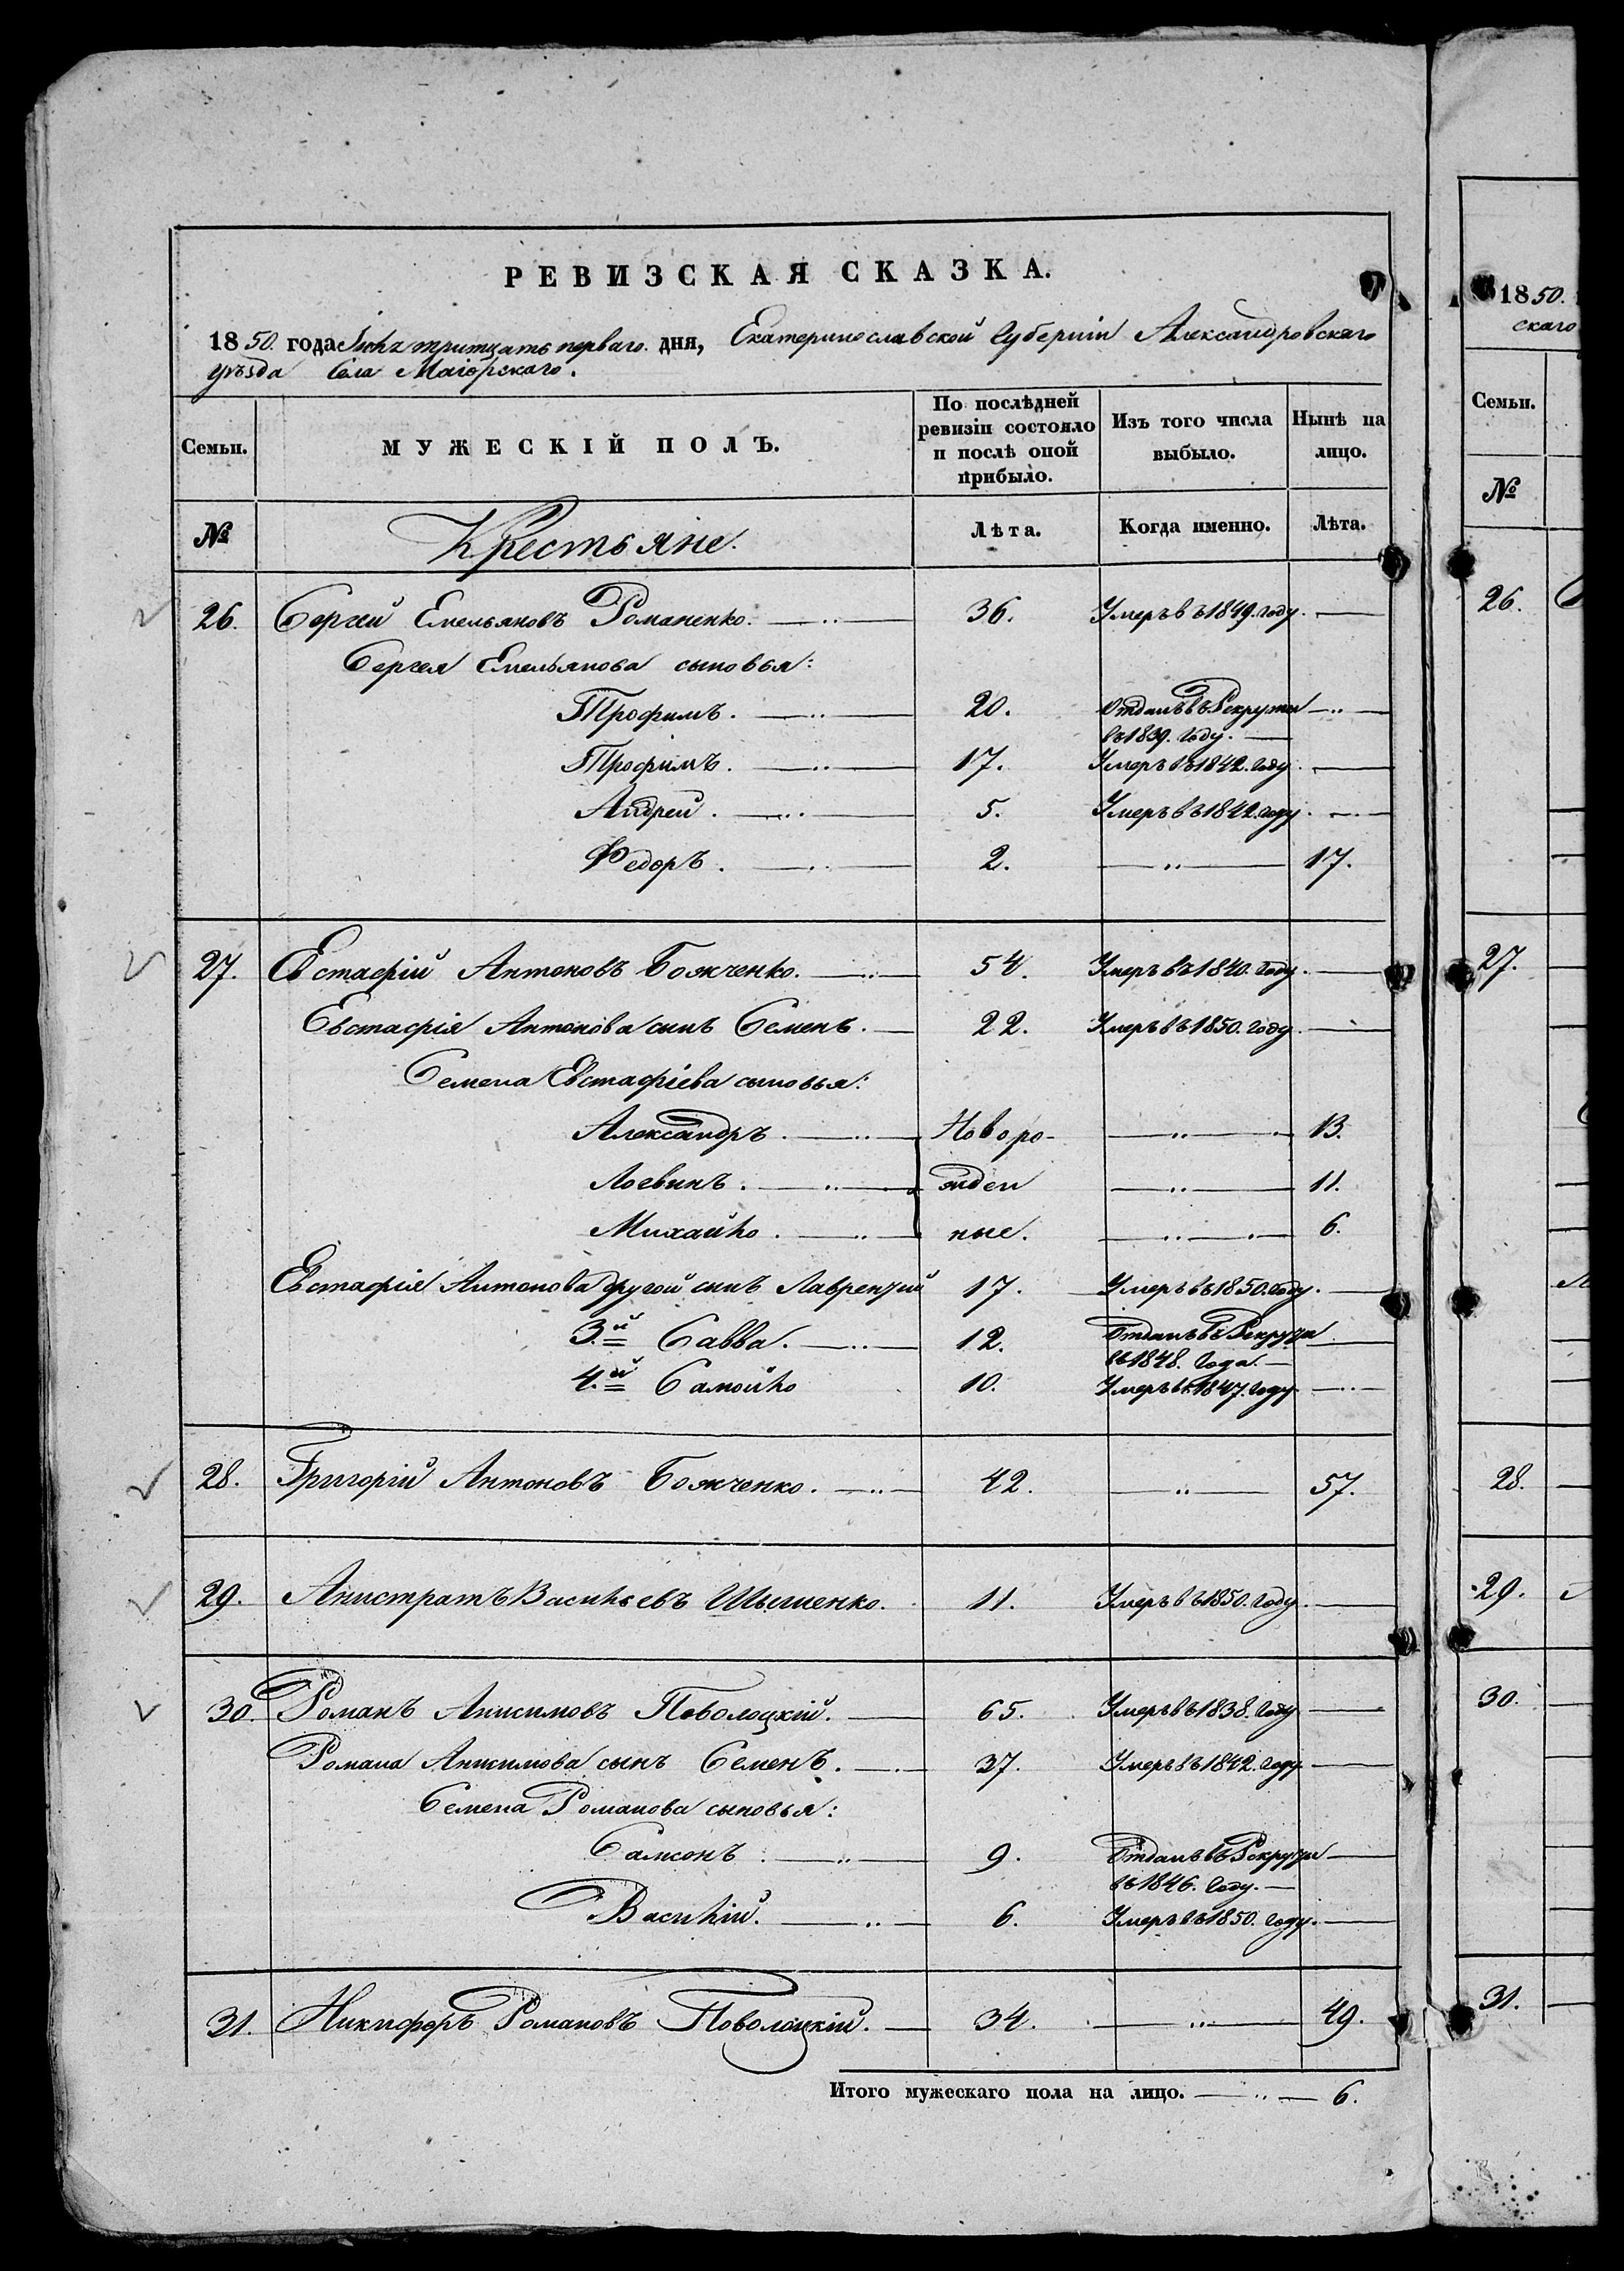 РЕВИЗСКАЯ СКАЗКА.
1850. года тритцать перваго. дня, Екатеринославской Губерніи Александровскаго
уѣзда Села Маіорскаго.
Семьи.
МУЖЕСКІЙ ПОЛЪ.
По послѣдней ревизіи состояло и послѣ оной прибыло.
Изъ того числа выбыло.
Нынѣ на лицо.
№
Крестьяне.
Лѣта.
Когда именно.
Лѣта.
26. Сергей Емельяновъ Романенко. 36. Умеръ въ 1849. году.
Сергея Емельянова сыновья:
Трофимъ. 20. Отданъ въ Рекруты
въ 1839. Году.
Трофимъ. 17. Умеръ въ 1842. Году.
Андрей. 5. Умеръ въ 1842. году.
Федоръ. 2. 17.
27. Евстафій Антоновъ Божченко. 54. Умеръ въ 1840. Году.
Евстафія Антонова сынъ Семенъ. 22. Умеръ въ 1850. Году.
Семена Евстафіева сыновья:
Александръ. Новоро- 13.
Логвинъ. жден 11.
Михайло. ные. 6.
Евстафія Антонова другой сынъ Лаврентій 17. Умеръ въ 1850. Году.
3.й Савва. 12. Отданъ въ Рекруты
въ 1848. Года.
4.й Самойло 10. Умеръ въ 1847. Году.
28. Григорій Антоновъ Божченко. 42. 57.
29. Анистратъ Васильевъ 11. Умеръ въ 1850. Году.
30. Романъ Анисимовъ Поволоцкій. 65. Умеръ въ 1838. Году
Романа Анисимова сынъ Семенъ. 27. Умеръ въ 1842. Году.
Семена Романова сыновья:
Самсонъ. 9. Отданъ въ Рекруты
въ 1846. Году.
Василій. 6. Умеръ въ 1850. Году.
31. Никифоръ Романовъ Поволоцкій. 34. 49.
Итого мужескаго пола на лицо. 6.
1850.
скаго
Семьи.
№
26.
27.
28.
29.
30.
31.